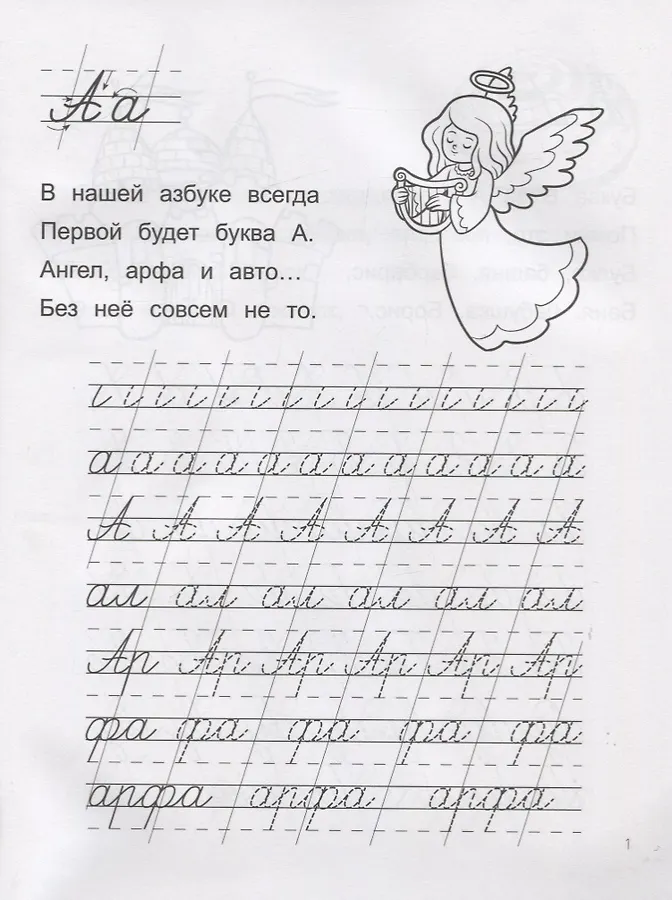 Аа
В нашей азбуке всегда
Первой будет буква А.
Ангел, арфа и авто...
Без неё совсем не то.
а а а а а а а а а а а а
А А А А А А А А
ал ал ал ал ал ал
Ар Ар Ар Ар Ар Ар
фа фа фа фа фа
арфа арфа арфа
1